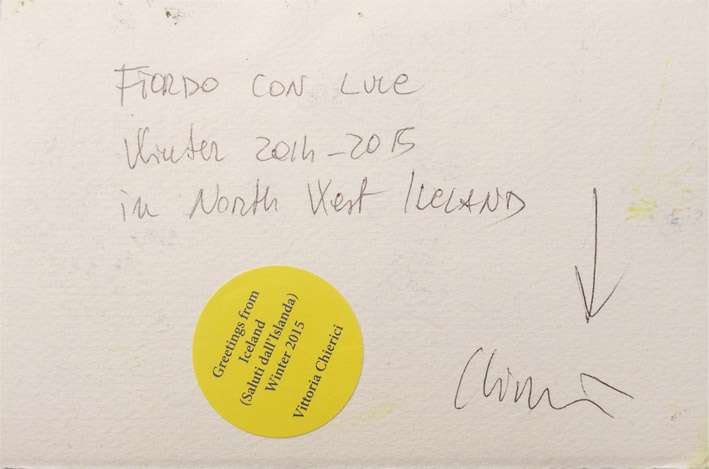 Fiordo con luce
Winter 2014-2015
in North West Iceland
Greetings from
Iceland
(Saluti dall'Islanda)
Winter 2015
Vittoria Chierici